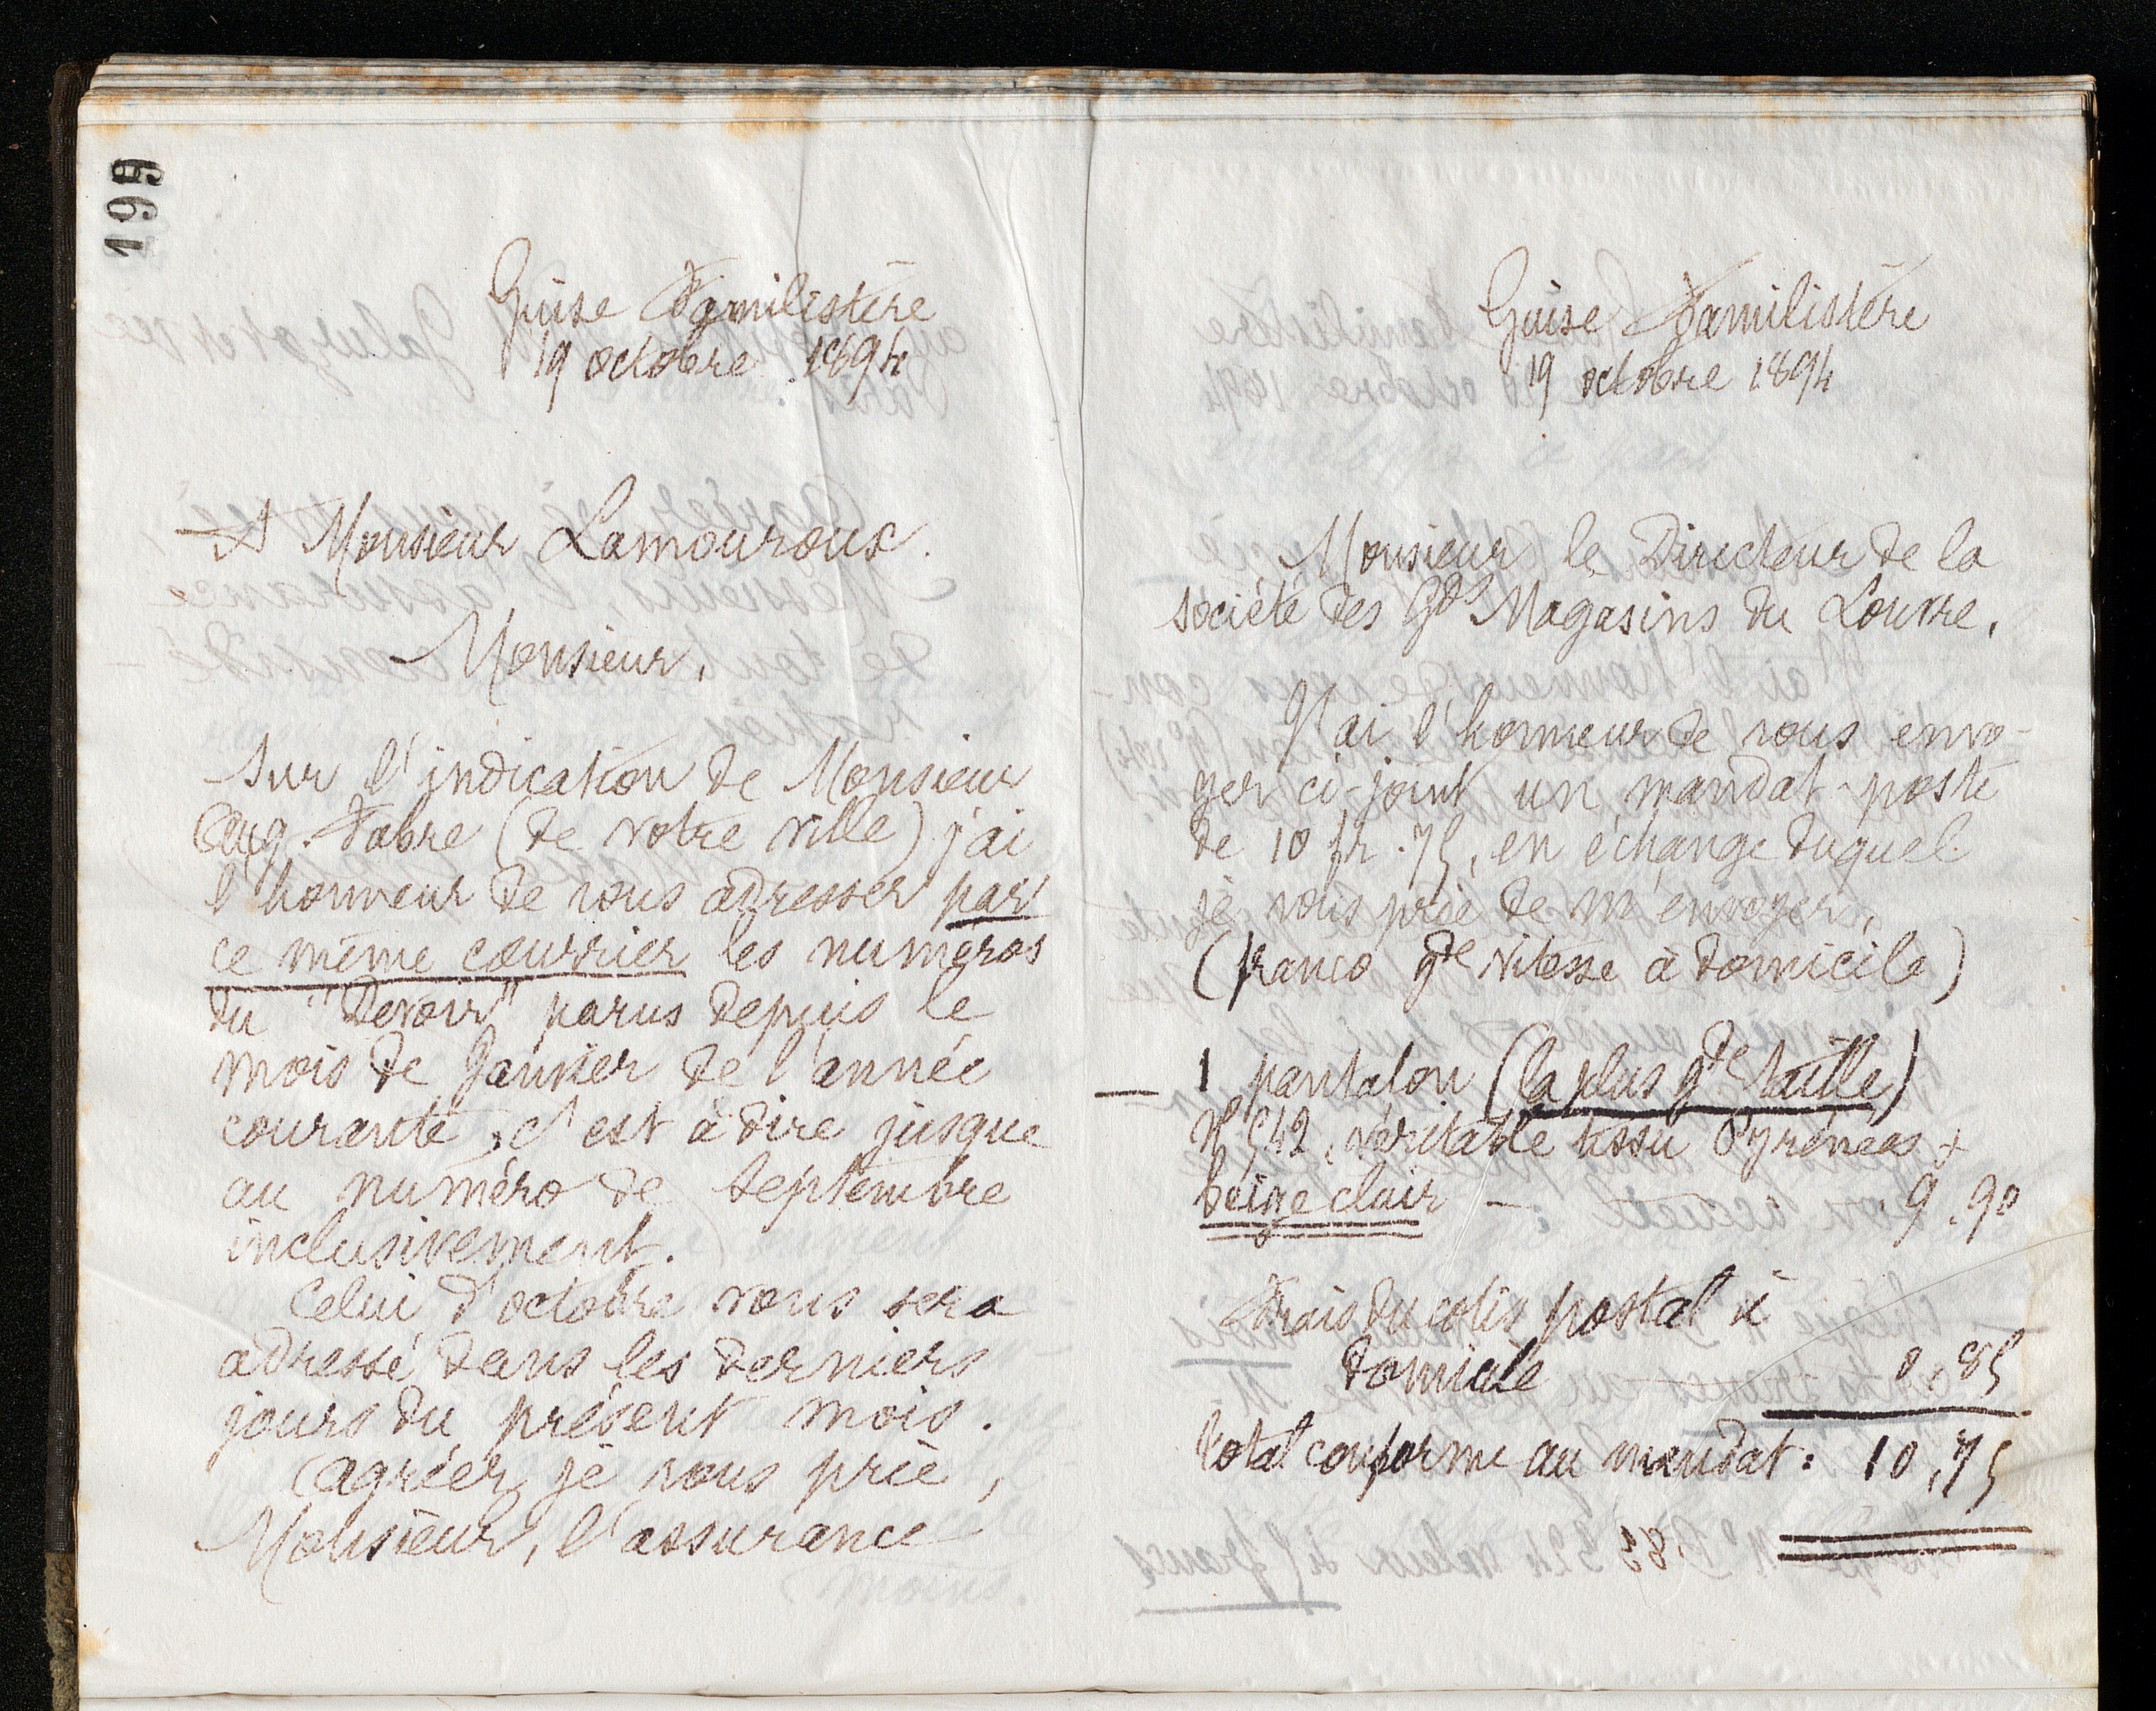 199
Guise Familistère
19 octobre 1894
A Monsieur Lamouroux.
Monsieur,
Sur l'indication de Monsieur
Aug. Fabre (de votre ville) j'ai
l'honneur de vous adresser par
ce même courrier les numéros
du "Devoir" parus depuis le
mois de Janvier de l'année
courante, c'est à dire jusque
au numéro de Septembre
inclusivement.
Celui d'octobre vous sera
adressé dans les derniers
jours du présent mois.
Agréer, je vous prie,
Monsieur, l'assurance
Guise Familistère
19 octobre 1894
Monsieur le Directeur de la
société des Gds Magasins du Louvre,
J'ai l'honneur de vous envo-
yer ci-joint un mandat-poste
de 10 fr. 75, en échange duquel
je vous prie de m'envoyer,
(franco gde vitesse à domicile)
— 1 pantalon (la plus gde taille)
No 542, véritable tissu Pyrénées +
beige clair — 9.90
Frais du colis postal à
domicile 0,85
Total conforme au mandat : 10,75